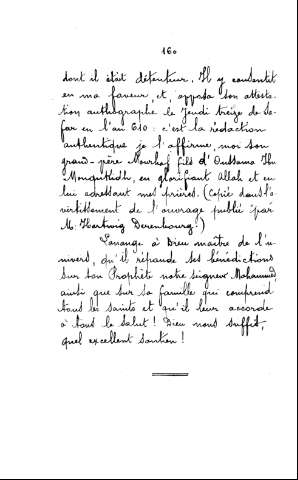 160
dont il était détenteur. Il y consentit
en ma faveur et, apposa son attesta-
tion authographe, le Jeudi treize de Sa-
far en l'an 610 : c'est la rédaction
authentique je l'affirme, moi son
grand-père Mourhaf fils d'Oussama Ibn
Mounkidh, en glorifiant Allah et en
lui adressant mes prières. (Copié dans l'a-
vertissement de l'ouvrage publié par
M. Hartwig Derenbourg !)
Louange à Dieu maître de l'u-
nivers, qu'il répande ses bénédictions
sur son Prophète notre seigneur Mohammed,
ainsi que sur sa famille qui comprend
tous les saints et qu'il leur accorde
à tous le salut ! Dieu nous suffit,
quel excellent soutien !